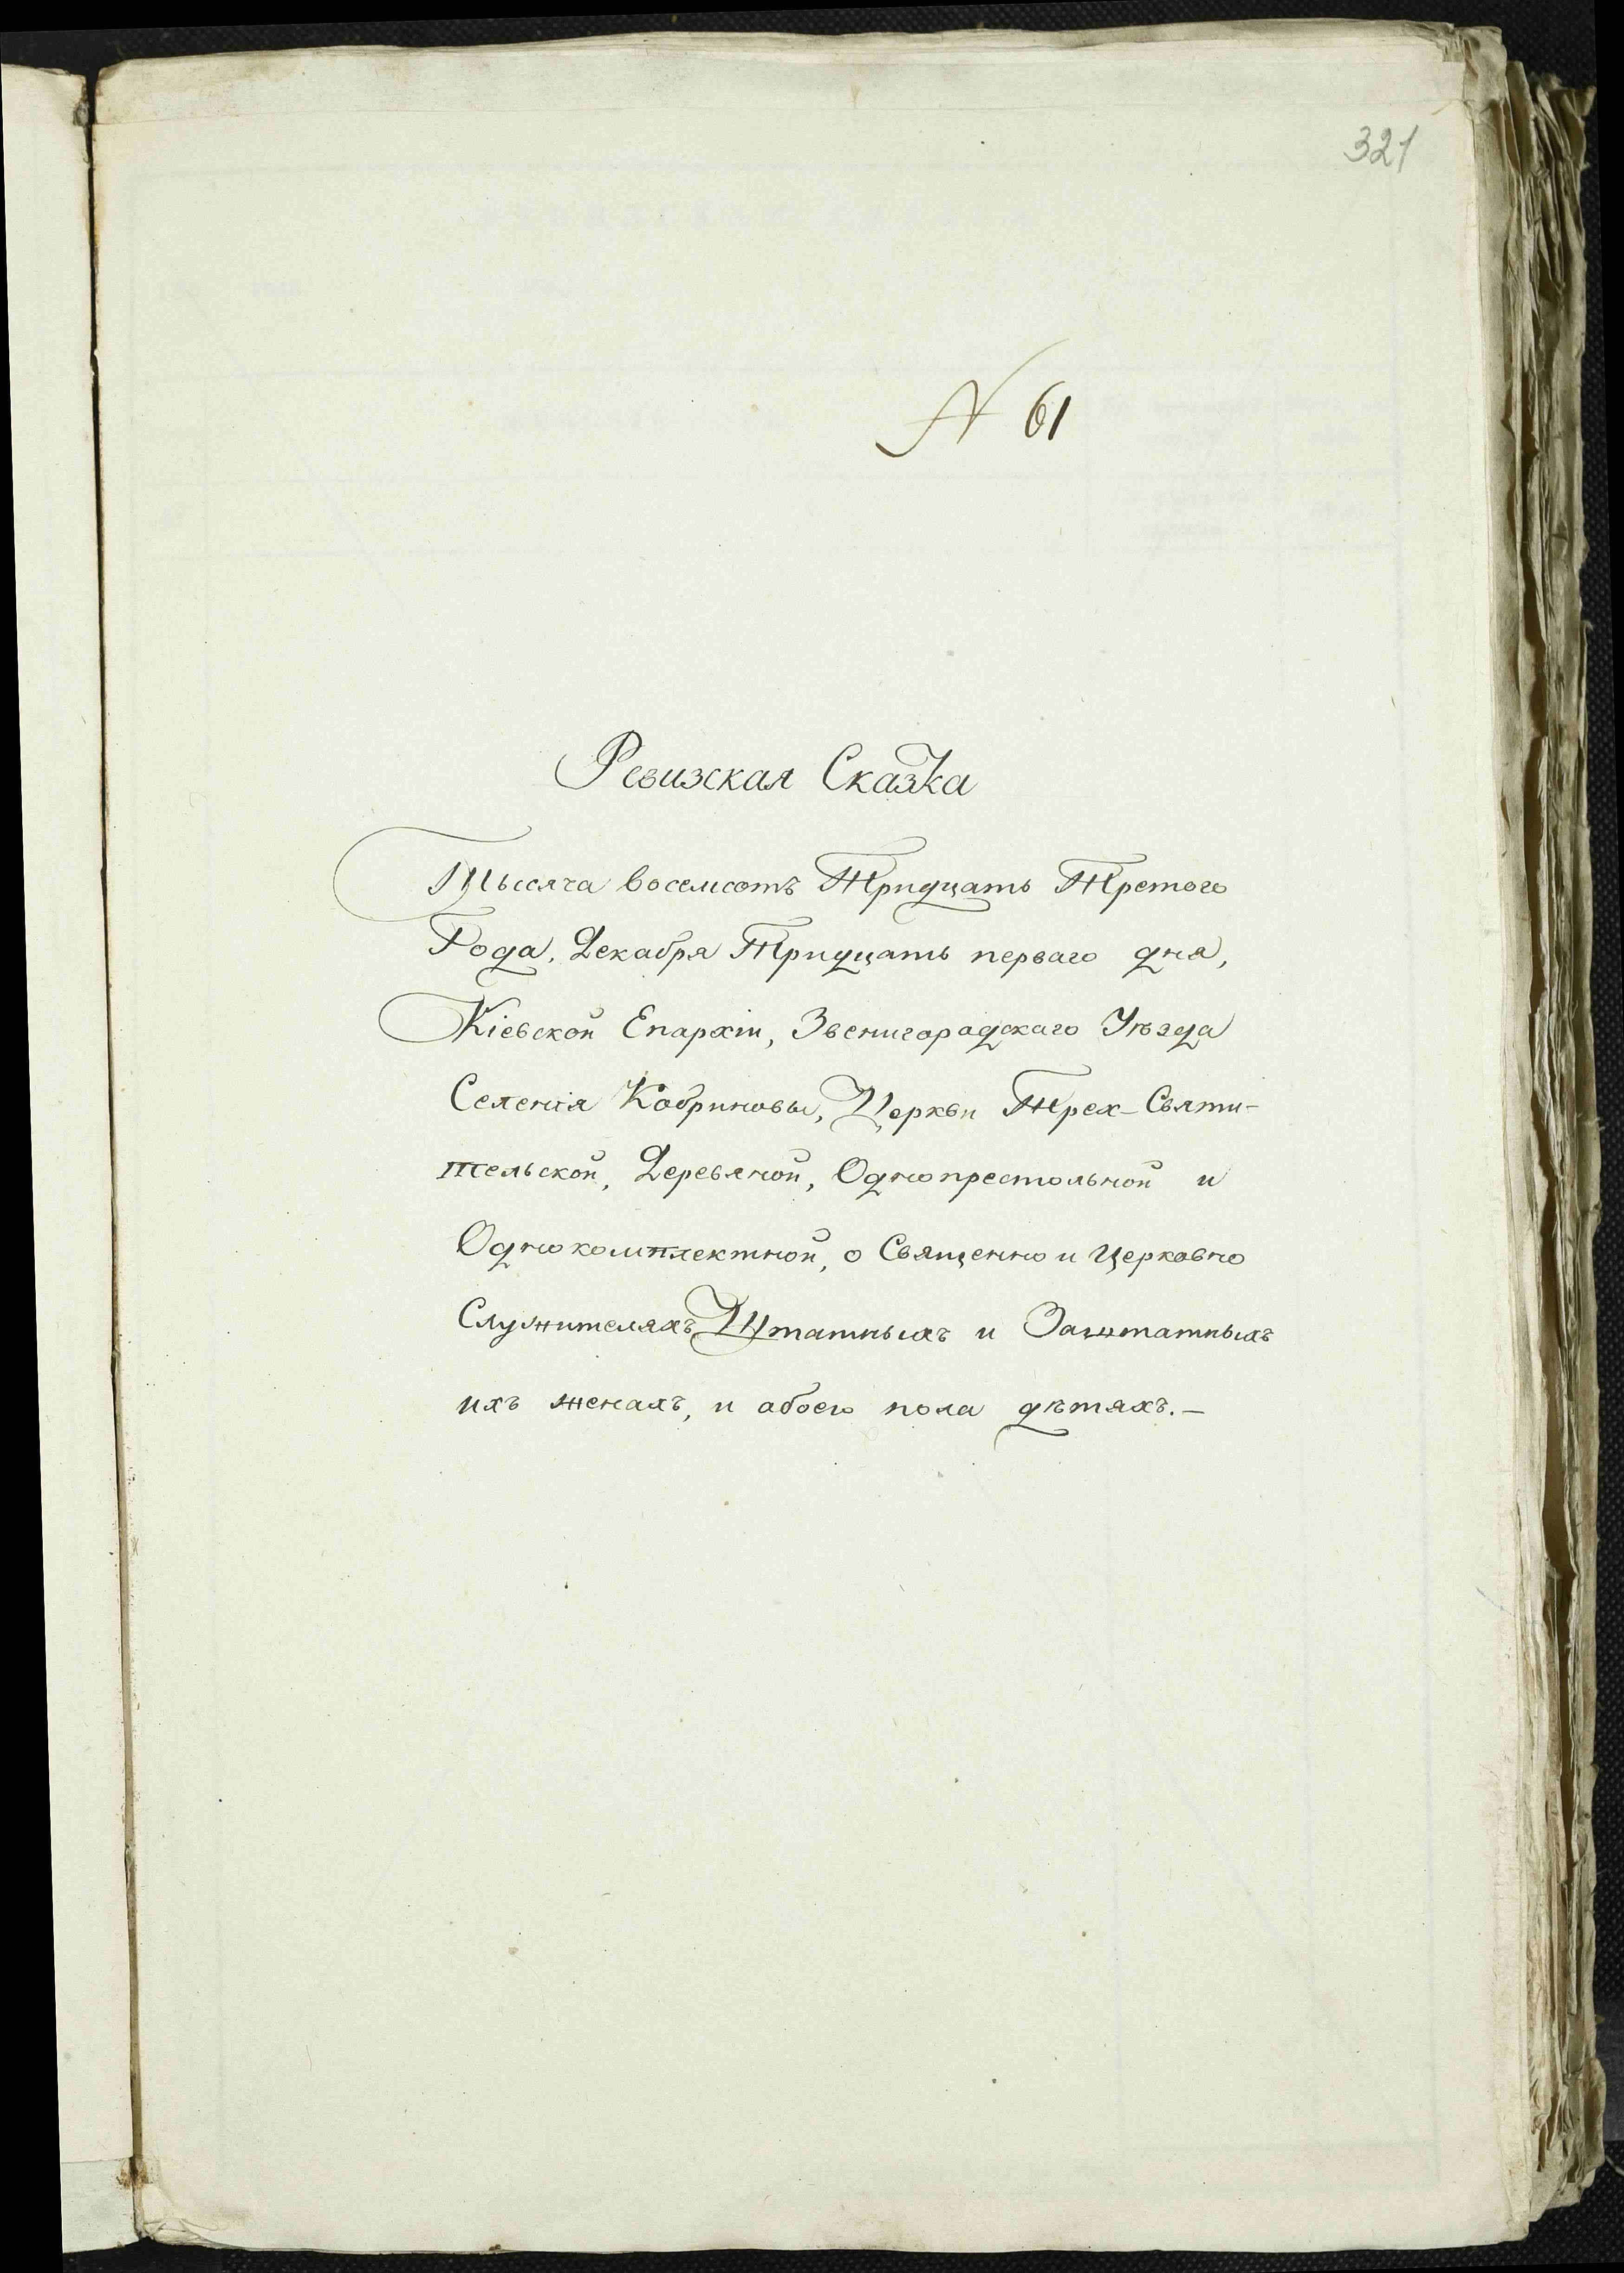 321
N 61
Ревизская Сказка
Тысяча восемсотъ Тридцать Третого
Года, Декабря Тридцать перваго дня,
Кіевской Епархіи, Звенигорадскаго Уѣзда
Селенія Кобриновы, Церкви Трех-Святи-
тельской, Деревяной, Однопрестольной и
Однокомплектной, о Священно и Церковно
Служителяхъ Штатныхъ и Заштатныхъ
ихъ женахъ, и обоего пола дѣтяхъ.-